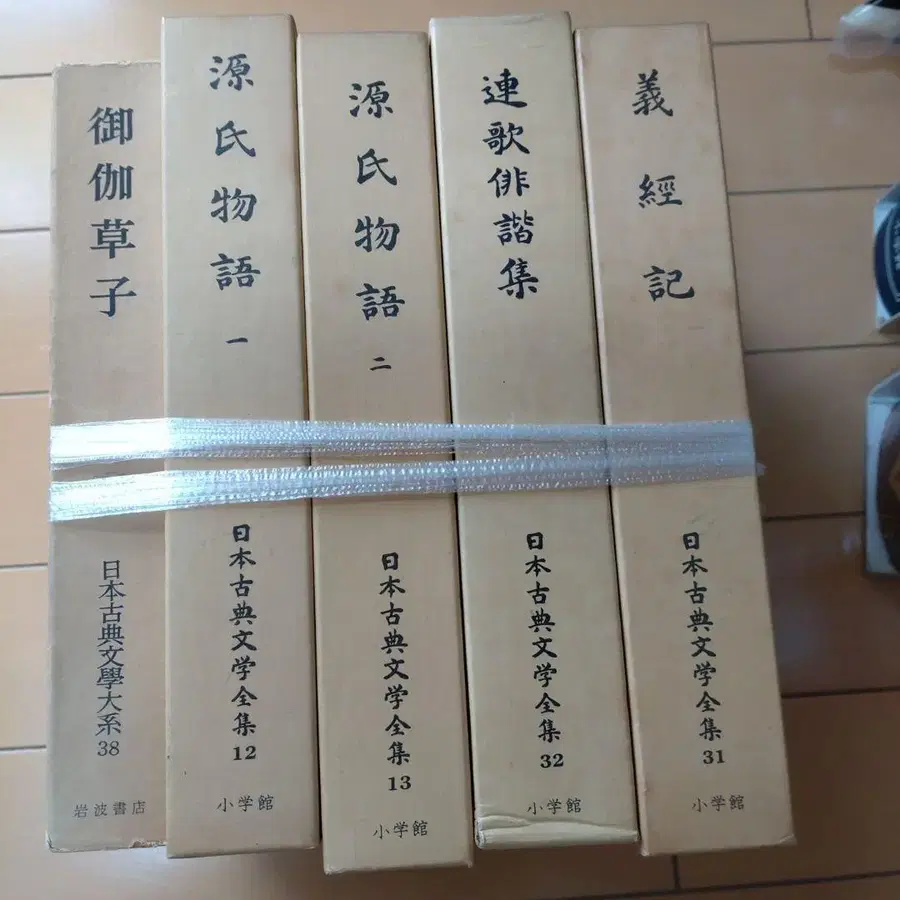 御伽草子
日本古典文學大系
38
岩波書店
源氏物語 一
日本古典文学全集
12
小学館
源氏物語 二
日本古典文学全集
13
小学館
連歌俳諧集
日本古典文学全集
32
小学館
義經記
日本古典文学全集
31
小学館